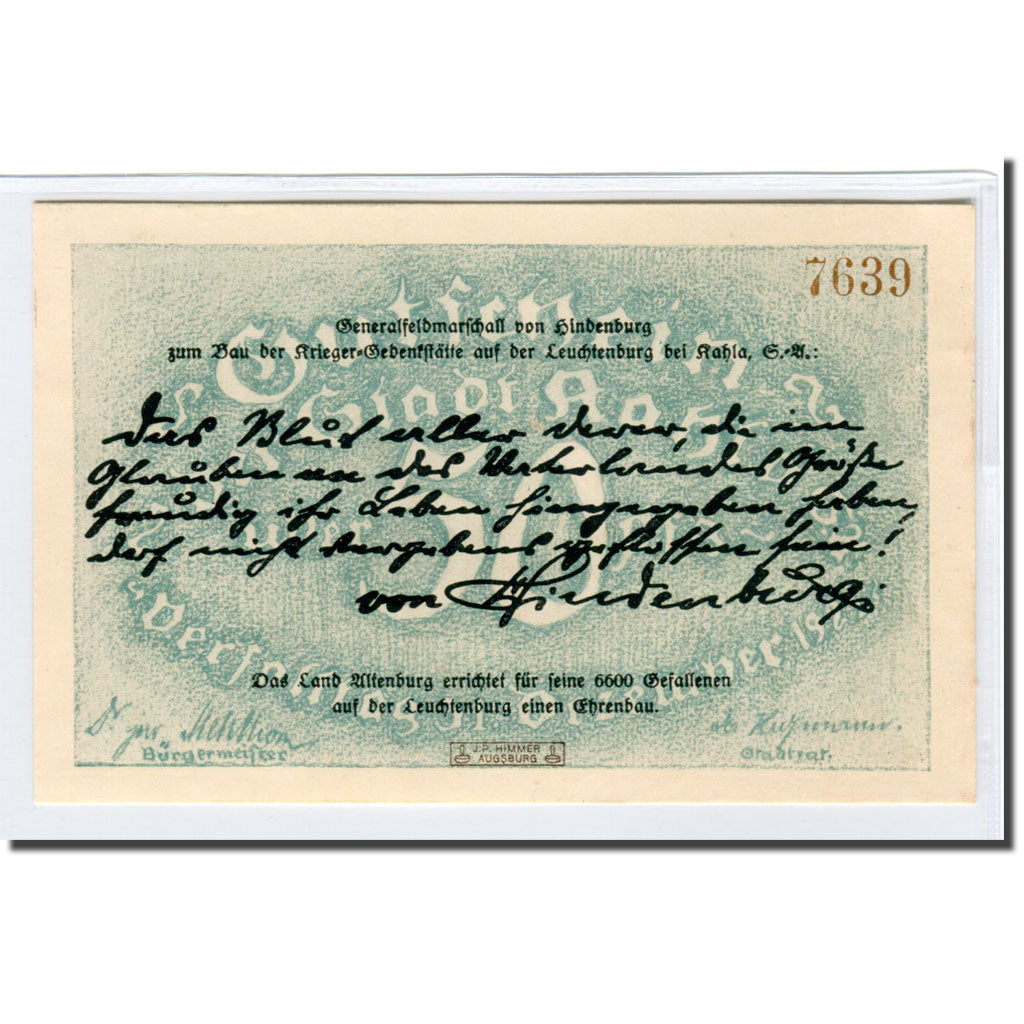 7639
Generalfeldmarschall von Hindenburg
zum Bau der Krieger-Gedenkstätte auf der Leuchtenburg bei Kahla, S.-A.:
Das Blut aller derer, die im
Glauben an des Vaterlandes Größe
freudig ihr Leben hingegeben haben,
darf nicht vergebens geflossen sein!
von Hindenburg
Gutschein
Stadt Kahla
50
Das Land Altenburg errichtet für seine 6600 Gefallenen
auf der Leuchtenburg einen Ehrenbau.
Dr. jur.
Bürgermeister
Stadtrat.
J.P. HIMMER
AUGSBURG